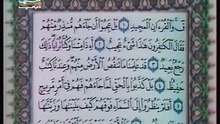 قٓ وَالْقُرْءَانِ الْمَجِيدِ ١ بَلْ عَجِبُوٓا۟ أَن جَآءَهُم مُّنذِرٌ مِّنْهُمْ
فَقَالَ الْكَٰفِرُونَ هَٰذَا شَىْءٌ عَجِيبٌ ٢ أَءِذَا مِتْنَا وَكُنَّا تُرَابًا ذَٰلِكَ
رَجْعٌ بَعِيدٌ ٣ قَدْ عَلِمْنَا مَا تَنقُصُ الْأَرْضُ مِنْهُمْ وَعِندَنَا كِتَٰبٌ
حَفِيظٌ ٤ بَلْ كَذَّبُوا۟ بِالْحَقِّ لَمَّا جَآءَهُمْ فَهُمْ فِىٓ أَمْرٍ مَّرِيجٍ
٥ أَفَلَمْ يَنظُرُوٓا۟ إِلَى السَّمَآءِ فَوْقَهُمْ كَيْفَ بَنَيْنَٰهَا وَزَيَّنَّٰهَا